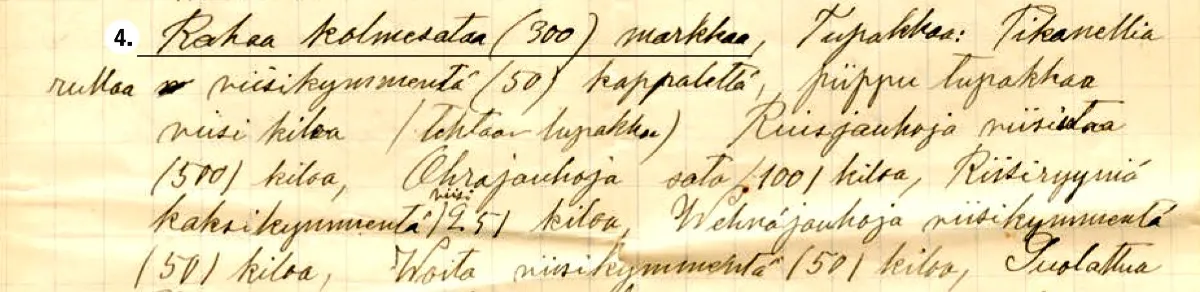 4. Rahaa kolmesataa (300) markkaa, Tupakkaa: Pikanellia
rullaa viisikymmentä (50) kappaletta, piippu tupakkaa
viisi kiloa (tehtaan tupakka) Ruisjauhoja viisisataa
(500) kiloa, Ohrajauhoja sata (100) kiloa, Riisiryyniä
kaksikymmentä viisi (25) kiloa, Wehnäjauhoja viisikymmentä
(50) kiloa, Woita viisikymmentä (50) kiloa, Suolattua